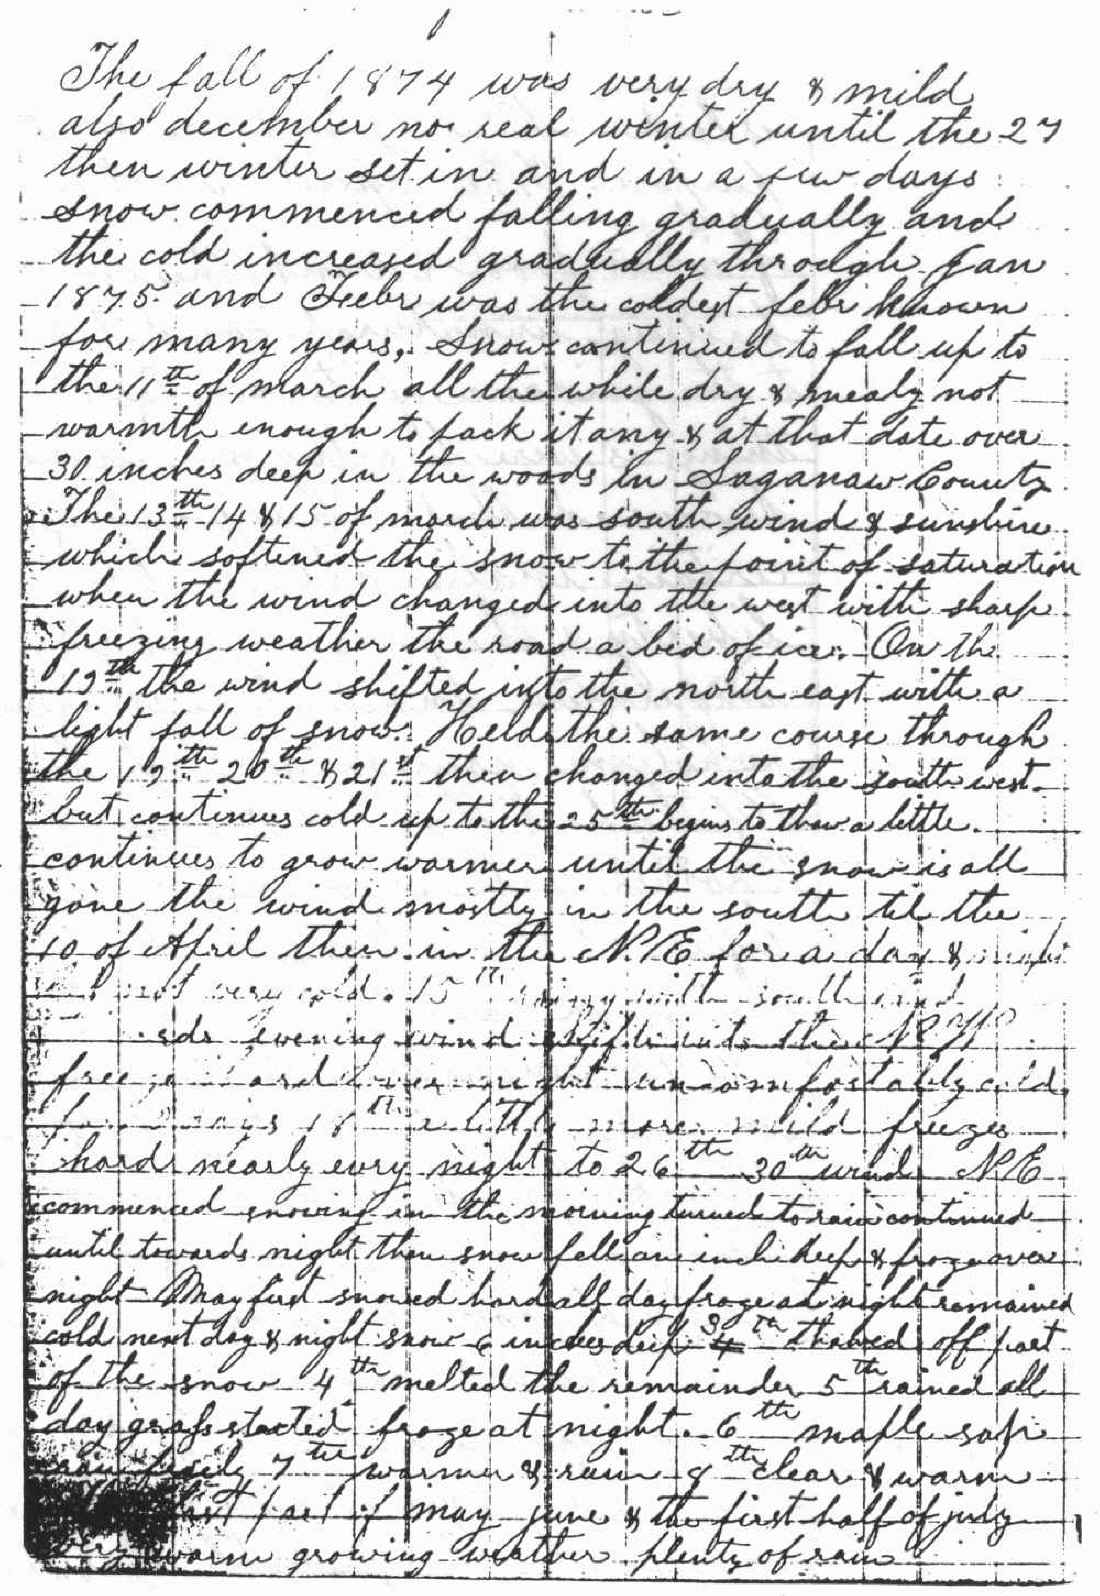 The fall of 1874 was very dry & mild
also december no real winter until the 27
then winter set in and in a few days
snow commenced falling gradually and
the cold increased gradually through Jan
1875 and Feebr was the coldest febr known
for many years, Snow continued to fall up to
the 11th of march all the while dry & mealy not
warmth enough to pack it any & at that date over
30 inches deep in the woods in Saganaw County
The 13th 14 & 15 of march was south wind & sunshine
which softened the snow to the point of saturation
when the wind changed into the west with sharp
freezing weather the road a bed of ice. On th
19th the wind shifted into the north east with a
light fall of snow. Held the same course through
the 19th 20th & 21st then changed into the south west
but continues cold up to the 25th begins to thaw a little
continues to grow warmer until the snow is all
gone the wind mostly in the south til the
10 of April then in the N.E for a day & night
not very cold. 15th with south wind
evening wind shifts into the N W
night uncomfortably cold,
days 18th a little more mild freezes
hard nearly evry night to 26th 30th wind N.E
commenced snowing in the morning turned to rain continued
until towards night then snow fell an inch deep & froze over
night May first snowed hard all day froze at night remained
cold next day & night snow 6 inches deep 3 4th thawed off part
of the snow 4th melted the remainder 5th rained all
day grass started froze at night. 6th maple sap
freely 7th warmer & rain 8th clear & warm
part of may june & the first half of july
very warm growing weather plenty of rain